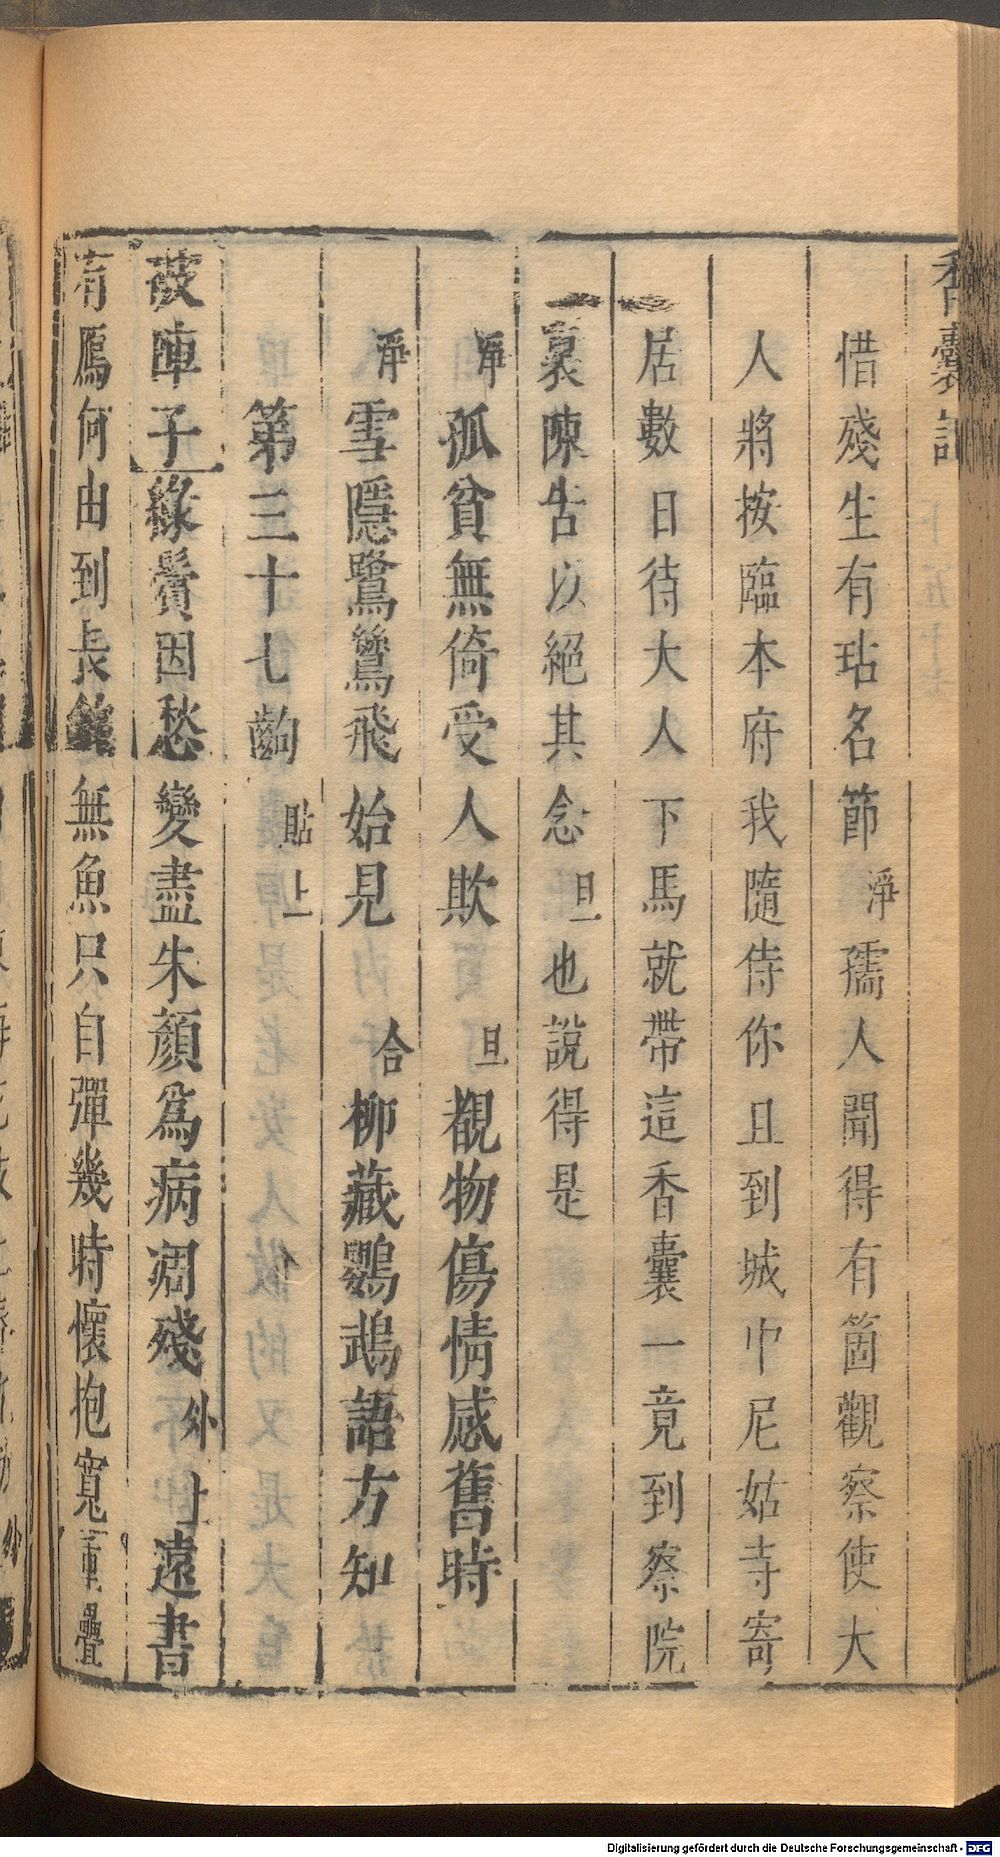 香囊記
借殘生有玷名節淨孺人聞得有箇觀察使大
人將按臨本府我隨侍你且到城中尼姑寺寄
居數日待大人下馬就帶這香囊一竟到察院
裏陳告以絕其念旦也說得是
淨孤貧無倚受人欺旦覩物傷情感舊時
淨雪隱鷺鷥飛始見合柳藏鸚鵡語方知
第三十七齣貼上
破陣子綠鬢因愁變盡朱顏爲病凋殘外上遠書
有鴈何由到長鋏無魚只自彈幾時懷抱寬重疊
Digitalisierung gefördert durch die Deutsche Forschungsgemeinschaft - DFG